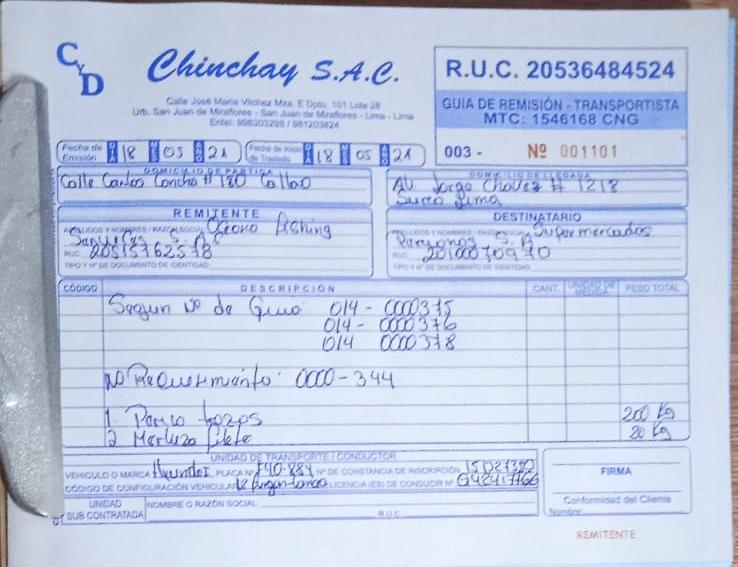 CyD
Chinchay S.A.C.
Calle José María Vilchez Mza. E Dpto. 101 Lote 28
Urb. San Juan de Miraflores - San Juan de Miraflores - Lima - Lima
Entel: 998303298 / 981203824
R.U.C. 20536484524
GUIA DE REMISIÓN - TRANSPORTISTA
MTC: 1546168 CNG
003 - Nº 001101
Fecha de Emisión DIA 18 MES 05 AÑO 21
Fecha de Inicio de Traslado DIA 18 MES 05 AÑO 21
DOMICILIO DE PARTIDA
Calle Carlos Concha # 180 Callao
DOMICILIO DE LLEGADA
AV. Jorge Chavez # 1218
Surco Lima
REMITENTE
APELLIDOS Y NOMBRES / RAZON SOCIAL Oceano Fishing
S.A.C
RUC 20515762578
TIPO Y Nº DE DOCUMENTO DE IDENTIDAD
DESTINATARIO
APELLIDOS Y NOMBRES / RAZON SOCIAL Supermercados
Peruanos S.A
RUC 20100070970
TIPO Y Nº DE DOCUMENTO DE IDENTIDAD
CÓDIGO DESCRIPCIÓN CANT. UNIDAD DE MEDIDA PESO TOTAL
Segun Nº de Guia: 014 - 0000375
014 - 0000376
014 0000378
Nº Requerimiento: 0000-344
1. Perico trozos 200 Kg
2 Merluza filete 20 Kg
UNIDAD DE TRANSPORTE / CONDUCTOR
VEHICULO O MARCA Hyundai PLACA Nº F90-884 Nº DE CONSTANCIA DE INSCRIPCIÓN
CÓDIGO DE CONFIGURACIÓN VEHICULAR LICENCIA (ES) DE CONDUCIR Nº
UNIDAD SUB CONTRATADA
NOMBRE O RAZÓN SOCIAL:
R.U.C.
FIRMA
Conformidad del Cliente
Nombre:
REMITENTE